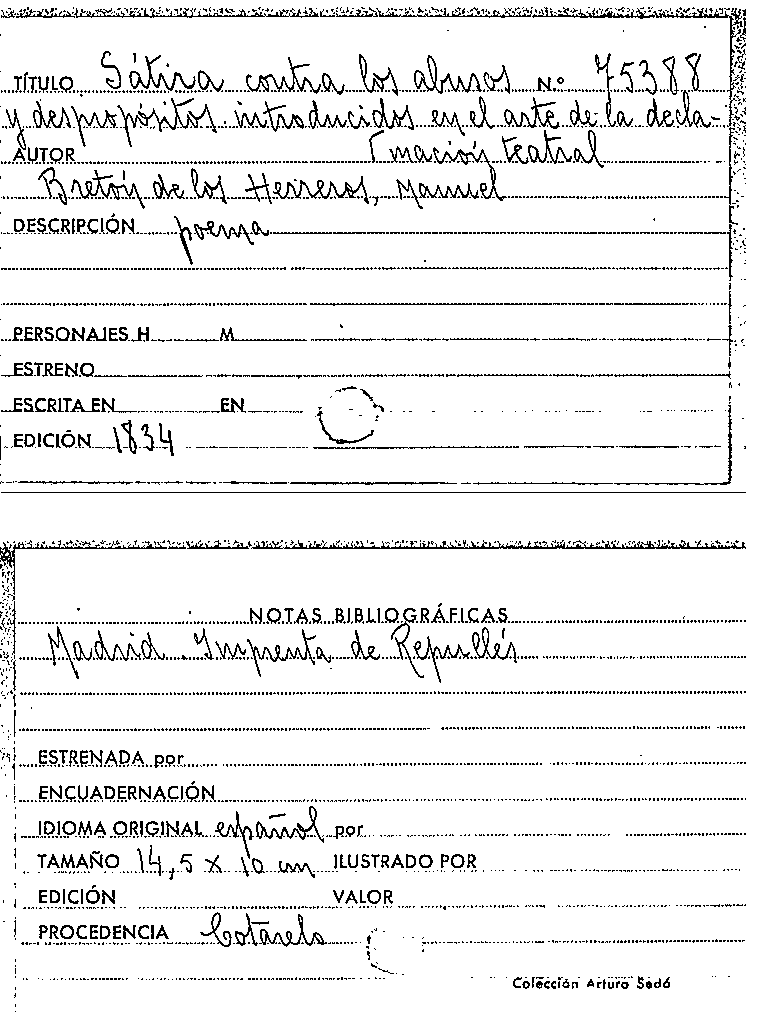 TÍTULO Sátira contra los abusos N.º 75388
y despropósitos introducidos en el arte de la decla-
AUTOR mación teatral
Bretón de los Herreros, Manuel
DESCRIPCIÓN poema
PERSONAJES H M
ESTRENO
ESCRITA EN EN
EDICIÓN 1834
NOTAS BIBLIOGRÁFICAS
Madrid. Imprenta de Repullés
ESTRENADA por
ENCUADERNACIÓN
IDIOMA ORIGINAL español por
TAMAÑO 14,5 x 10 cm ILUSTRADO POR
EDICIÓN VALOR
PROCEDENCIA Cotarelo
Colección Arturo Sedó